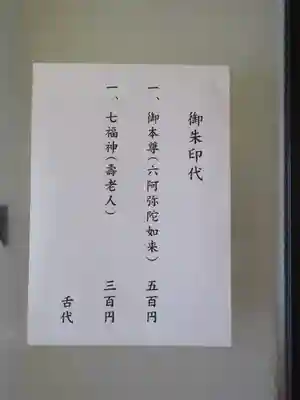 御朱印代
一、御本尊（六阿弥陀如来）　五百円
一、七福神（壽老人）　三百円
舌代